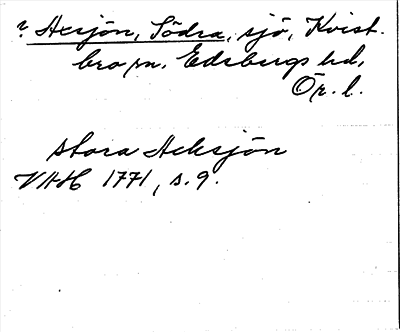 ? Axsjön, Södra, sjö, Kvist-
bro sn, Edsbergs hd,
Ör. l.
stora Acksjön
VAH 1771, s. 9.